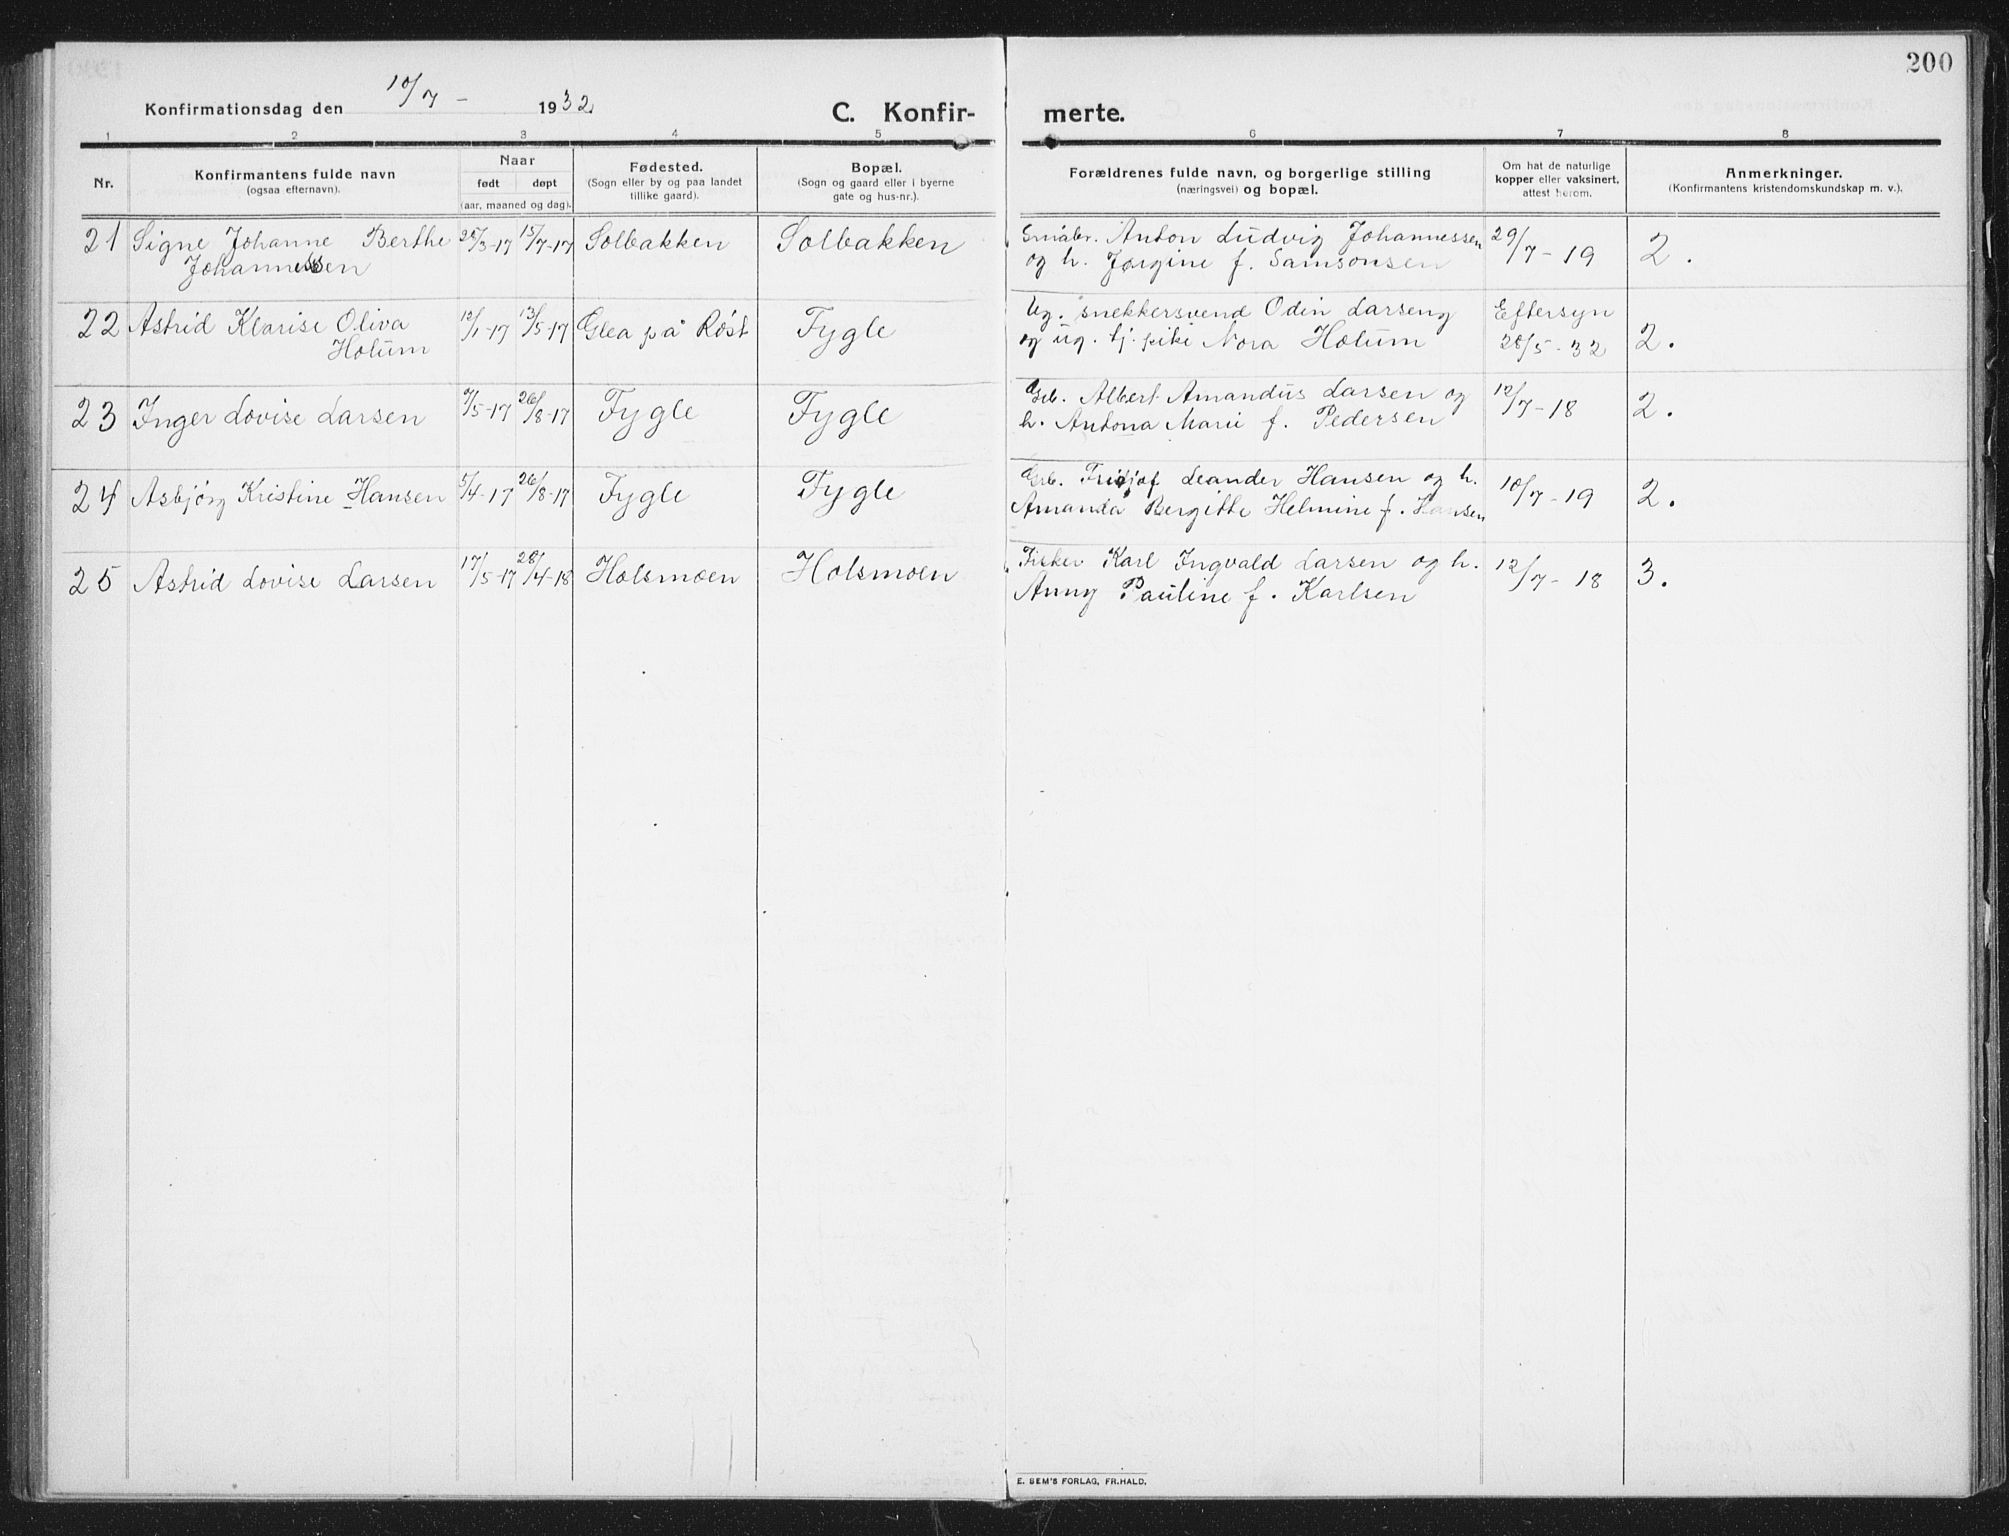 200
Konfirmationsdag den 10/7 - 1932
C. Konfir- merte.
1 2 3 4 5 6 7 8
Nr.
Konfirmantens fulde navn
(ogsaa efternavn).
Naar
født døpt
(aar, maaned og dag).
Fødested.
(Sogn eller by og paa landet
tillike gaard).
Bopæl.
(Sogn og gaard eller i byerne
gate og hus-nr.).
Forældrenes fulde navn, og borgerlige stilling
(næringsvei) og bopæl.
Om hat de naturlige
kopper eller vaksinert,
attest herom.
Anmerkninger.
(Konfirmantens kristendomskundskap m. v.).
21 Signe Johanne Berthe 15/7-17 Solbakken Solbakken Småbr. Anton Ludvig Johannessen 29/7-19 2.
Johannessen og h. Jørgine f. Samsonsen
22 Astrid Klarise Oliva 12/1-17 13/5-17 Glea på Røst Fygle Ug. snekkersvend Odin Larseng Eftersyn
Holum og ug. tj. pike Nora Holum 28/5-32 2.
23 Inger Lovise Larsen 9/5-17 26/8-17 Fygle Fygle Grb. Albert Amandus Larsen og 12/7-18 2.
h. Antona Marie f. Pedersen
24 Asbjørg Kristine Hansen 5/4-17 26/8-17 Fygle Fygle Grb. Fridjof Leander Hansen og h. 10/7-19 2.
Amanda Bergitte Helmine f. Hansen
25 Astrid Lovise Larsen 17/5-17 28/4-18 Holsmoen Holsmoen Fisker Karl Ingvald Larsen og h. 12/7-18 3.
Anny Pauline f. Karlsen
E. SEM'S FORLAG, FR.HALD.